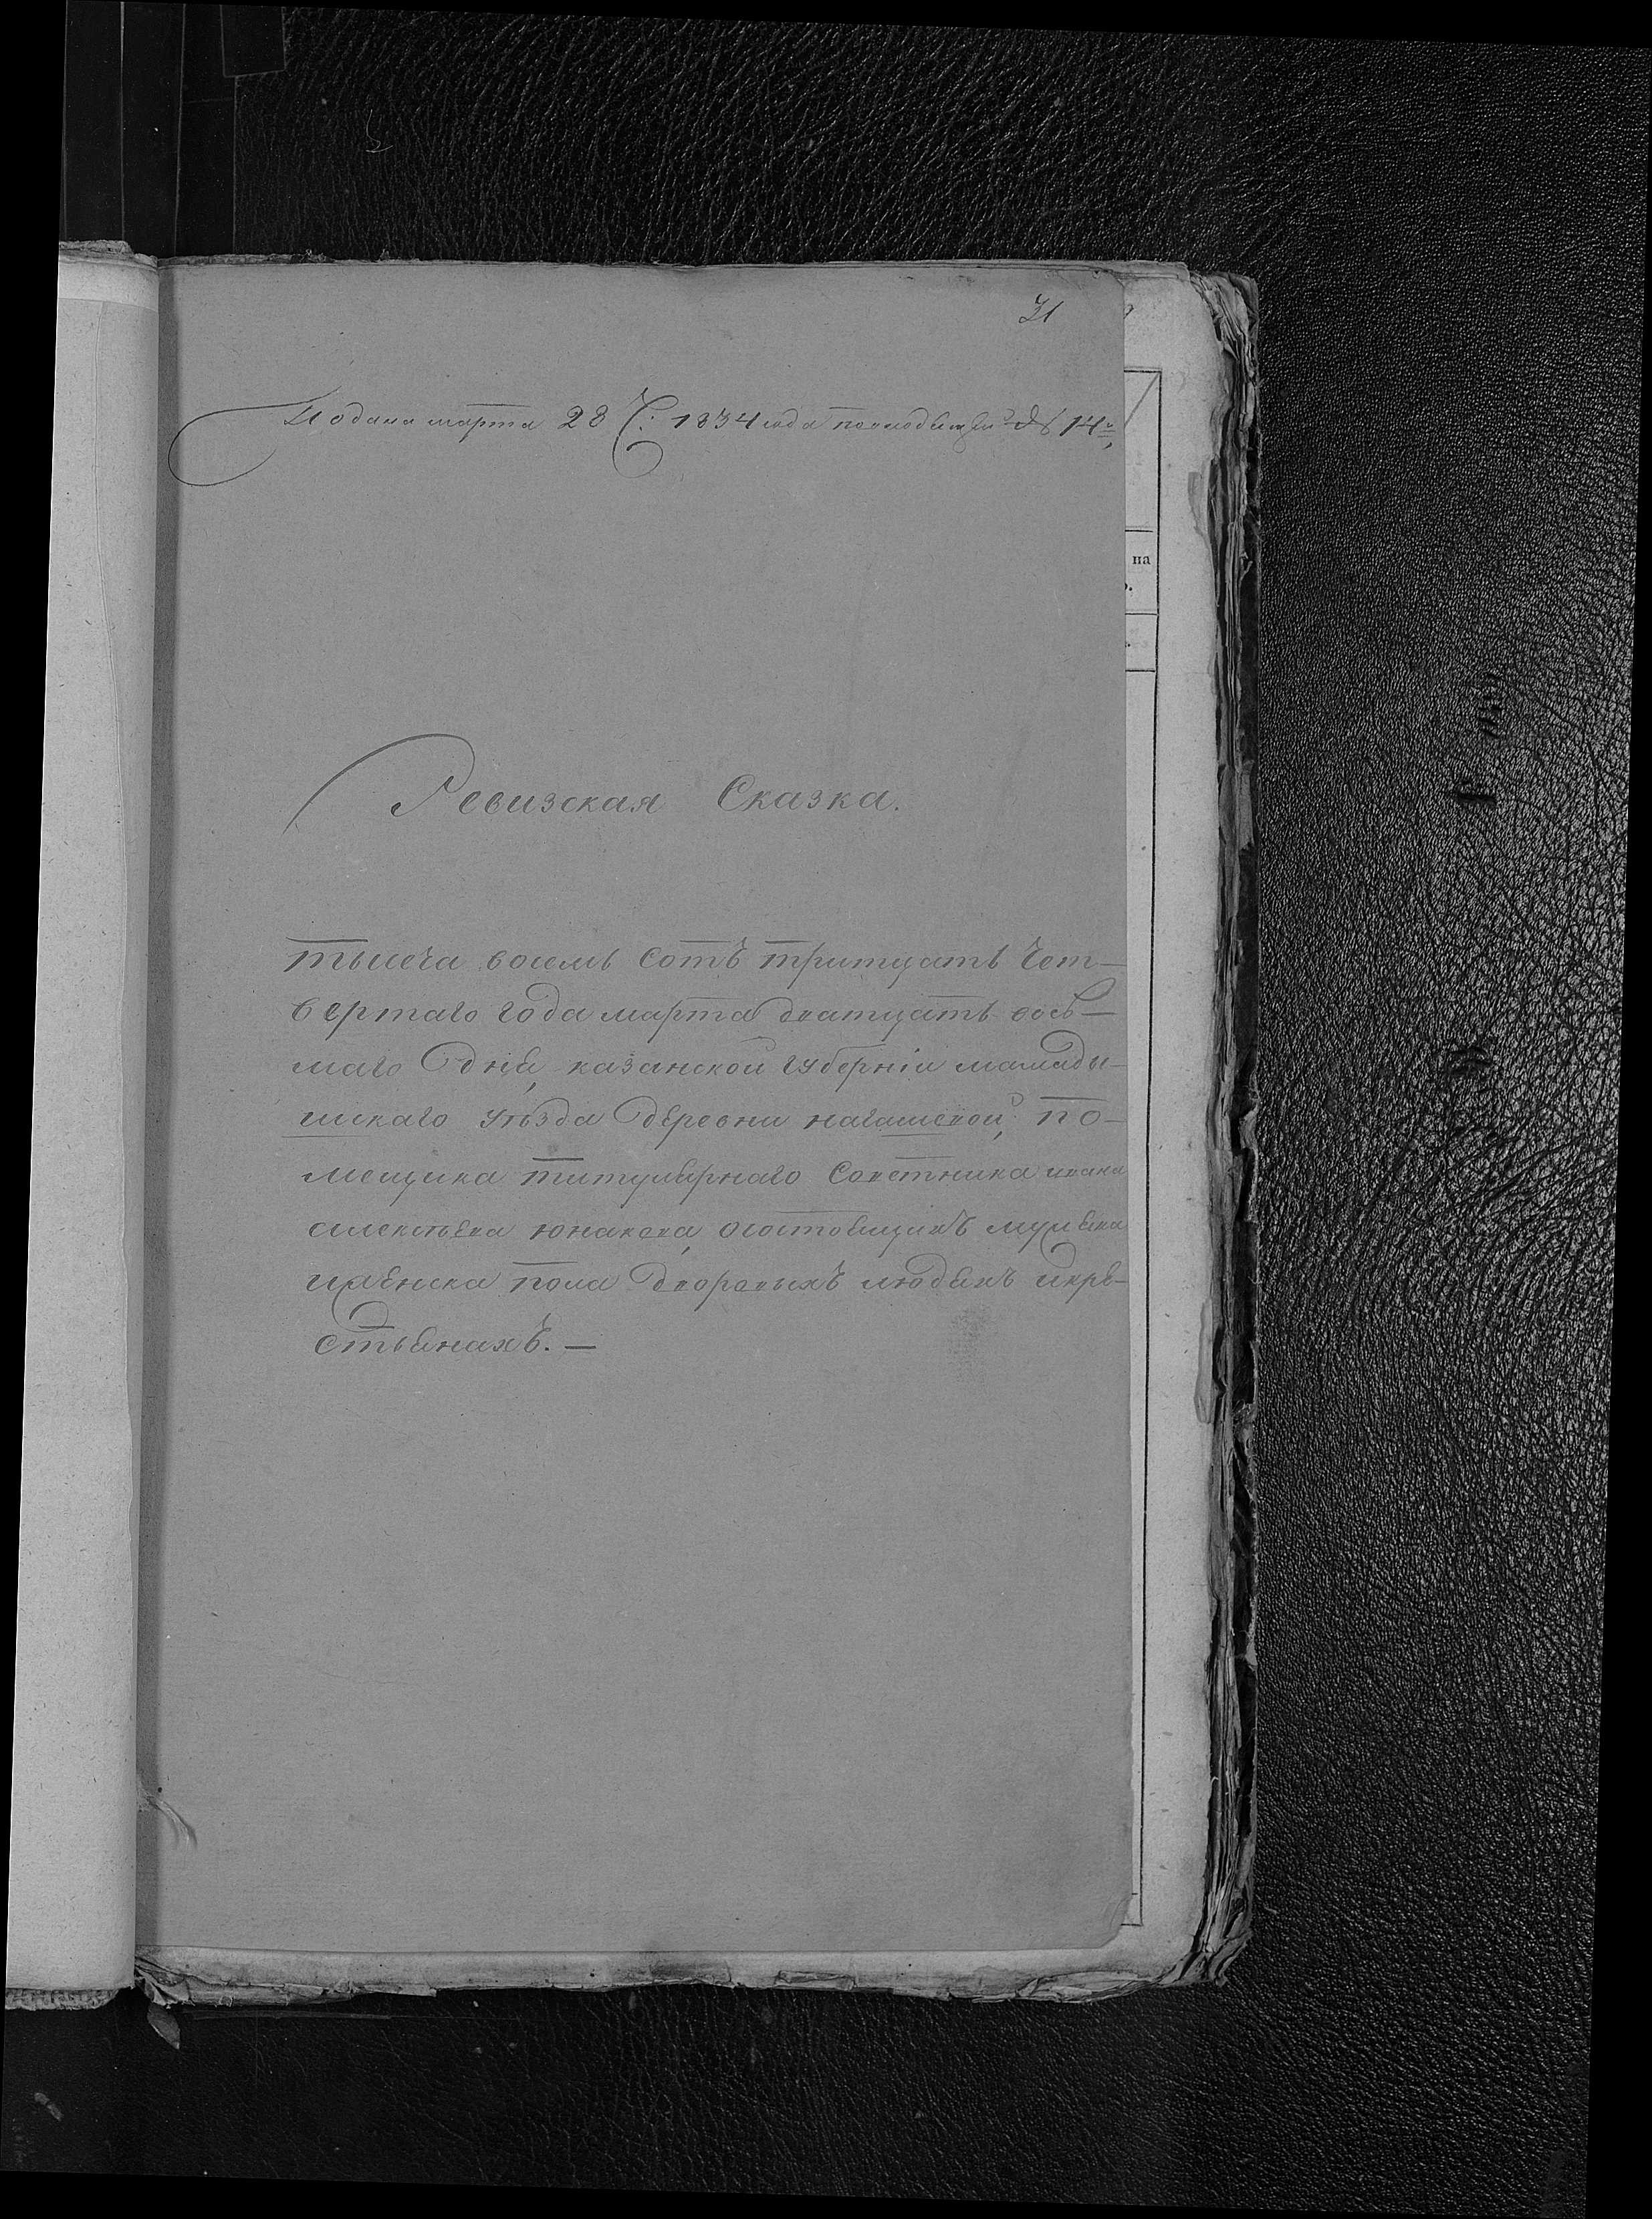 31
Подана марта 28 Ч: 1834 года повходящей № 14й
Ревизская Сказка.
тысеча восемь сотъ тритцать чет-
вертаго года марта дватцать вось-
маго дня, казанской губерніи мамады-
шскаго уѣзда деревни нагашевой, по-
мещика титулярнаго Советника ивана
алексѣева юнакова, осостоящихъ мужска
иженска пола дворовыхъ людяхъ икре-
стьянахъ. —
на